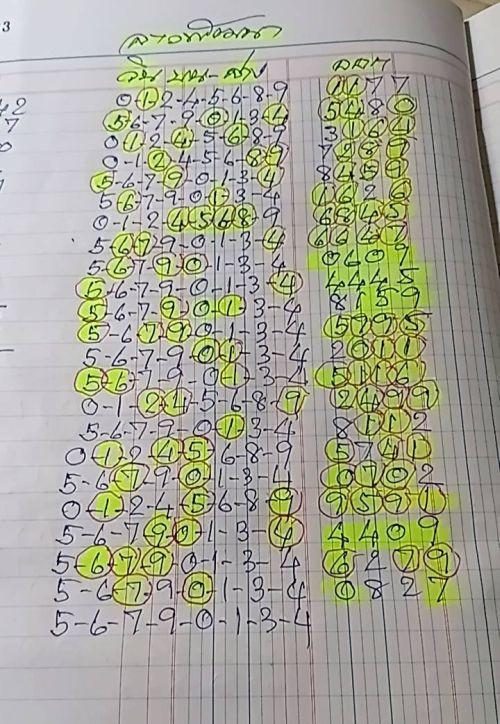 ลาวพัฒนา
วิน บน-ล่าง ออก
0-1-2-4-5-6-8-9 1177
5-6-7-9-0-1-3-4 5480
0-1-2-4-5-6-8-9 3164
0-1-2-4-5-6-8-9 7289
5-6-7-9-0-1-3-4 8459
5-6-7-9-0-1-3-4 1626
0-1-2-4-5-6-8-9 6845
5-6-7-9-0-1-3-4 6667
5-6-7-9-0-1-3-4 0607
5-6-7-9-0-1-3-4 4445
5-6-7-9-0-1-3-4 8159
5-6-7-9-0-1-3-4 5995
5-6-7-9-0-1-3-4 2011
5-6-7-9-0-1-3-4 5116
0-1-2-4-5-6-8-9 2499
5-6-7-9-0-1-3-4 8112
0-1-2-4-5-6-8-9 5741
5-6-7-9-0-1-3-4 0702
0-1-2-4-5-6-8-9 9591
5-6-7-9-0-1-3-4 4409
5-6-7-9-0-1-3-4 6279
5-6-7-9-0-1-3-4 0827
5-6-7-9-0-1-3-4